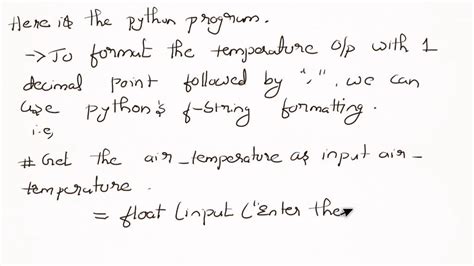 Here is the python program.
→ To format the temperature o/p with 1
decimal point followed by ".", we can
use python's f-string formatting.
i.e,
# Get the air_temperature as input air_
temperature.
= float (input ("Enter the